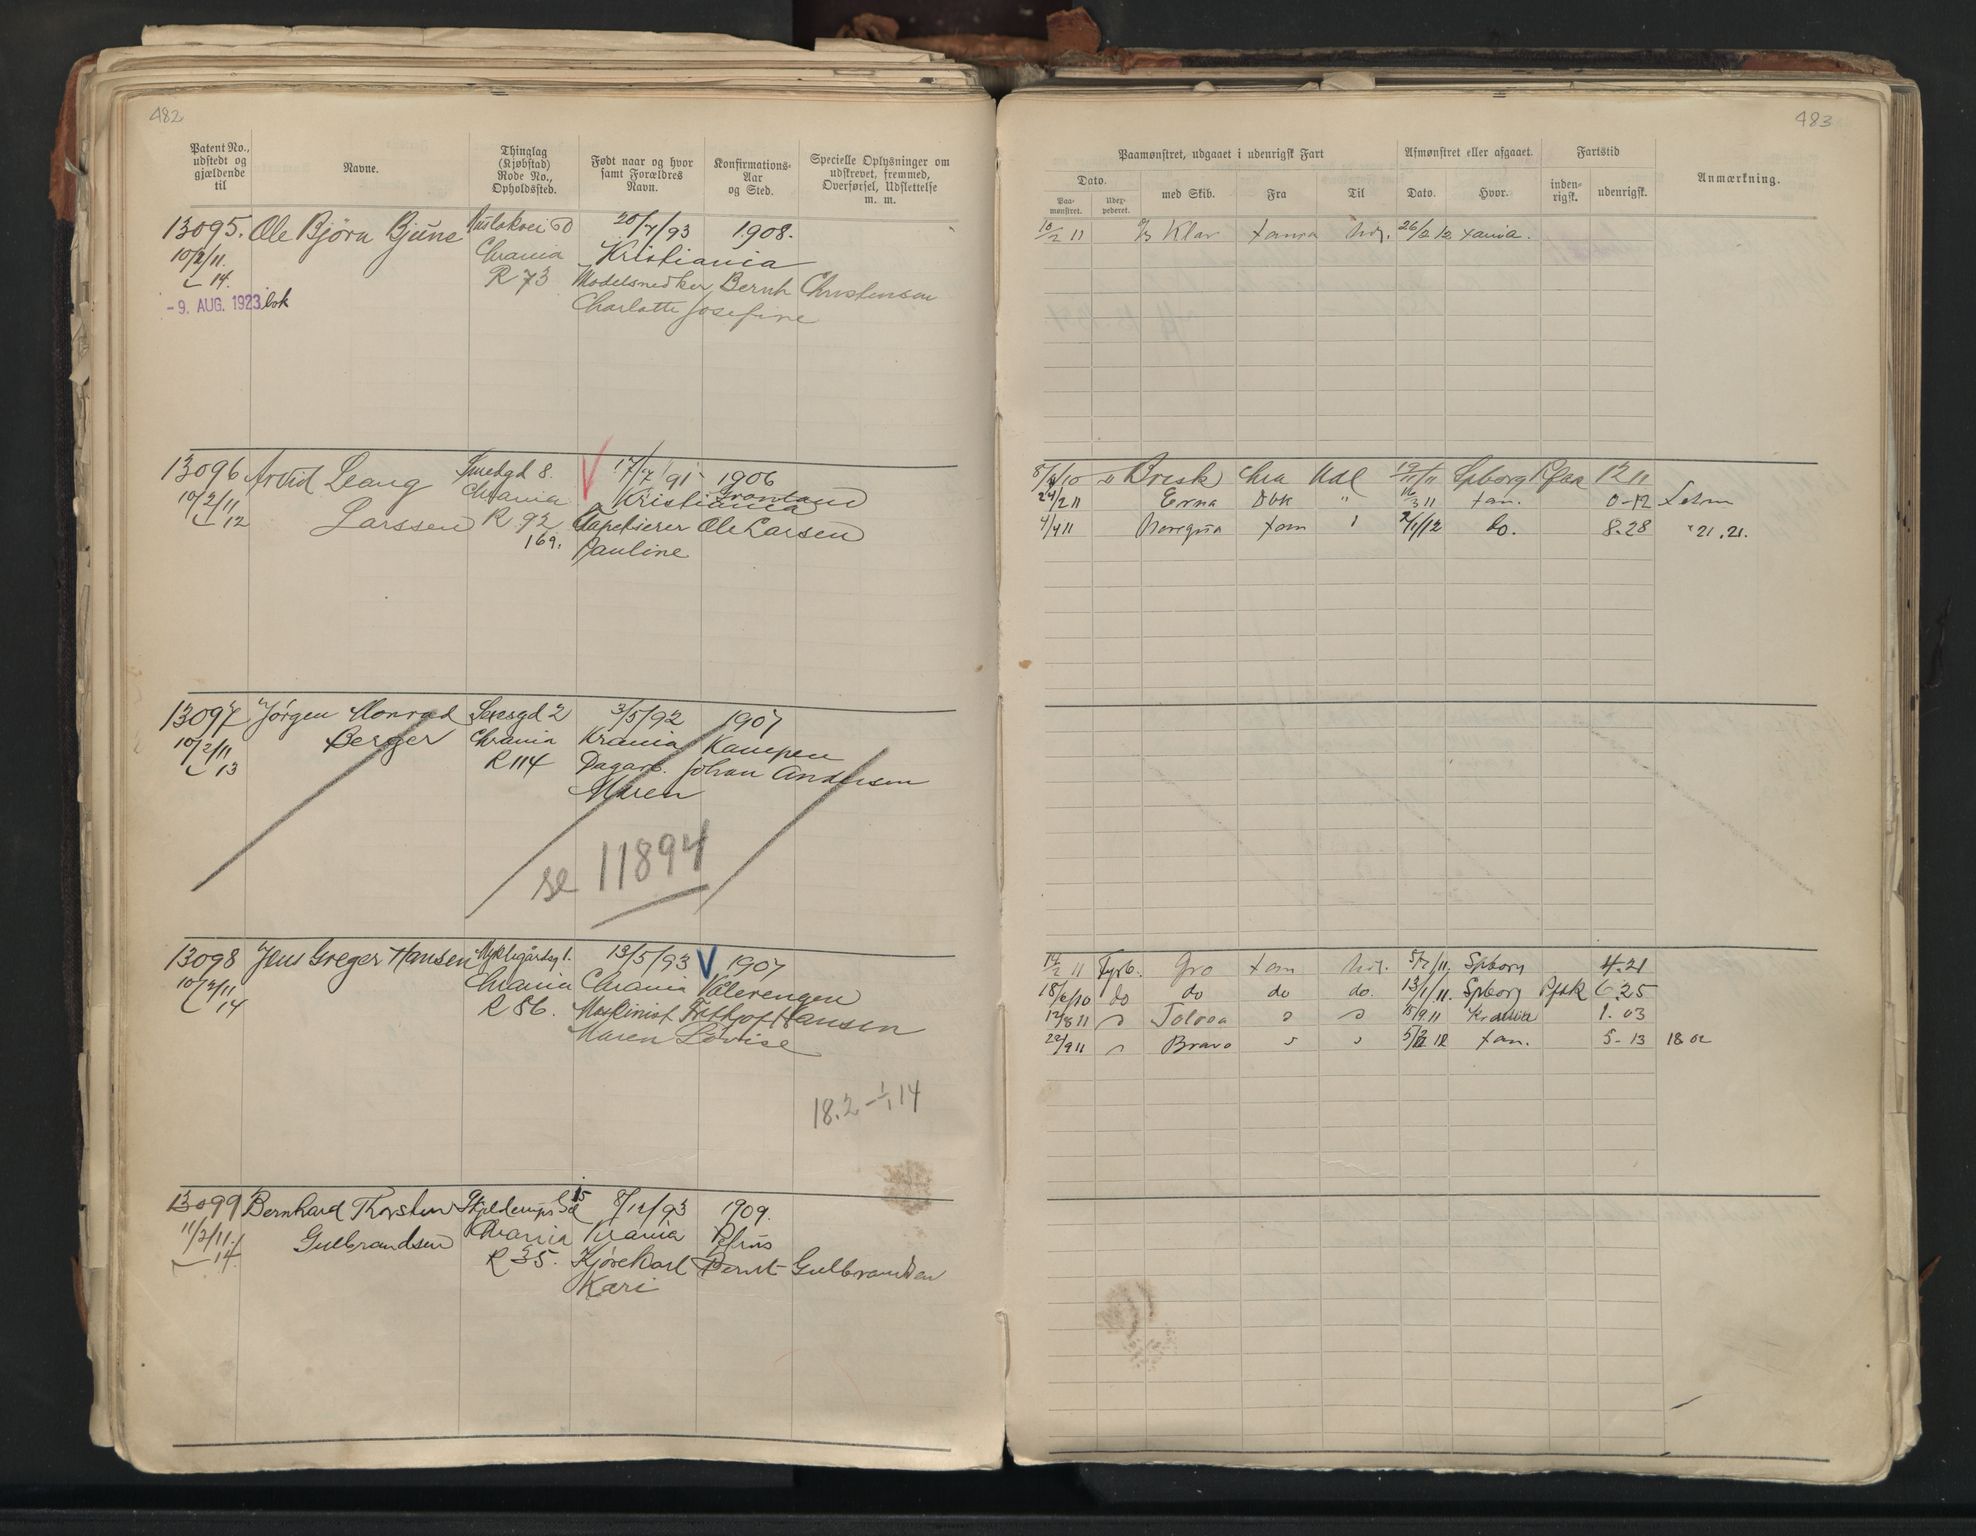 482
Patent No., udstedt og gjældende til
Navne.
Thinglag (Kjøbstad) Rode No., Opholdssted.
Født naar og hvor samt Forældres Navn.
Konfirmations-Aar og Sted.
Specielle Oplysninger om udskrevet, fremmed, Overførsel, Udslettelse m. m.
13095. Ole Bjørn Bjune 20/7/93 1908.
10/2/11. Chrania Kristiania
14. R 73 Modelsnedker Bernh Christensen
- 9. AUG. 1923 bok Charlotte Josefine
13096 Arvid Leang Smedgd 8. 17/7/91 1906
10/2/11 Chrania Kristiania Grønland
12 Larssen R 92 Tapetserer Ole Larsen
169. Pauline
13097 Jørgen Monrad 2 3/5/92 1907
10/2/11 Berger Chrania Krania Kampen
13 R 114 Dagarb. Johan Andersen
Maren
se 11894
13098 Jens Greger Hansen 13/5/93 1907
10/2/11 Chrania Chrania Vålerengen
14 R 86. Maskinist Fritjof Hansen
Maren Lovise
18.2 - 1/1 14
13099 Bernhard Thorsten 15 8/12/93 1909.
11/2/11. Gulbrandsen Chrania Krania
14. R 35. Kjørekarl Bernt Gulbrandsen
Kari
483
Paamønstret, udgaaet i udenrigsk Fart
Afmønstret eller afgaaet.
Fartstid
Anmærkning.
Dato.
Paa-mønstret.
Udex-pederet.
med Skib.
Fra
Til
Dato.
Hvor.
inden-rigsk.
udenrigsk.
10/2 11 Klar xania Udl. 26/2 12 xania.
Brisk Chra Udl Spborg 12 11
24/2 11 Erna Dbk " 16/3 11 xan. 0-12
4/4 11 xan " 2/1/12 do. 8-28 " 21.21.
14/2 11 Fyrb. Gro xan Udl. 5/7/11. Spborg 4.21
18/6/10 do do do do. 13/1/11. Spborg 6.25
12/8 11 15/9 11 Krania 1.03
22/9 11 Bravo xan. 5-13 18 02